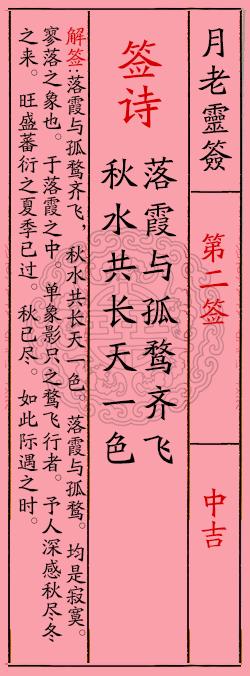 月老靈簽
第二签
中吉
签诗
落霞与孤鹜齐飞
秋水共长天一色
解签:落霞与孤鹜齐飞，秋水共长天一色。落霞与孤鹜。均是寂寞。
寥落之象也。于落霞之中。单象影只之鹜飞行者。予人深感秋尽冬
之来。旺盛蕃衍之夏季已过。秋已尽。如此际遇之时。